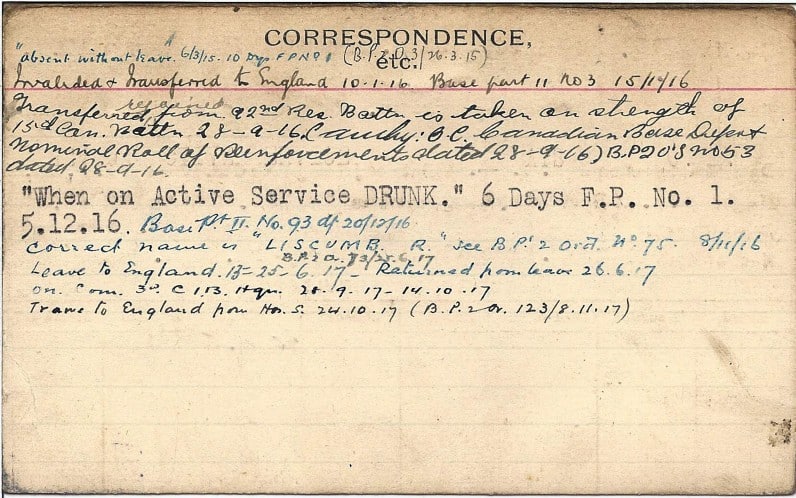 CORRESPONDENCE,
etc.
"absent without leave" 6/3/15. 10 Days F P No 1 (B.P.2.O.3/26.3.15)
Invalided & Transferred to England 10-1-16 Base part 11 No 3 15/1/16
rejoined
Transferred from 92nd Res. Battn is taken on strength of
15th Can. Battn 28-9-16 (Authy: O.C. Canadian Base Depot
Nominal Roll of Reinforcements dated 28-9-16) B.P.2 O's No 53
dated 28-9-16.
"When on Active Service DRUNK." 6 Days F.P. No. 1.
5.12.16. Base Pt II. No. 93 df 20/12/16
Correct name is "LISCUMB. R." see B.P. 2 Ord. No 75. 8/11/16
B.P.2 O. 73/25.6.17
Leave to England. 13-25-6.17 - Returned from leave 26.6.17
On Com. 3rd C.I.B. Hqn. 9.17-14.10.17
Trans to England from 24.10.17 (B.P. 2 Or. 123/8.11.17)